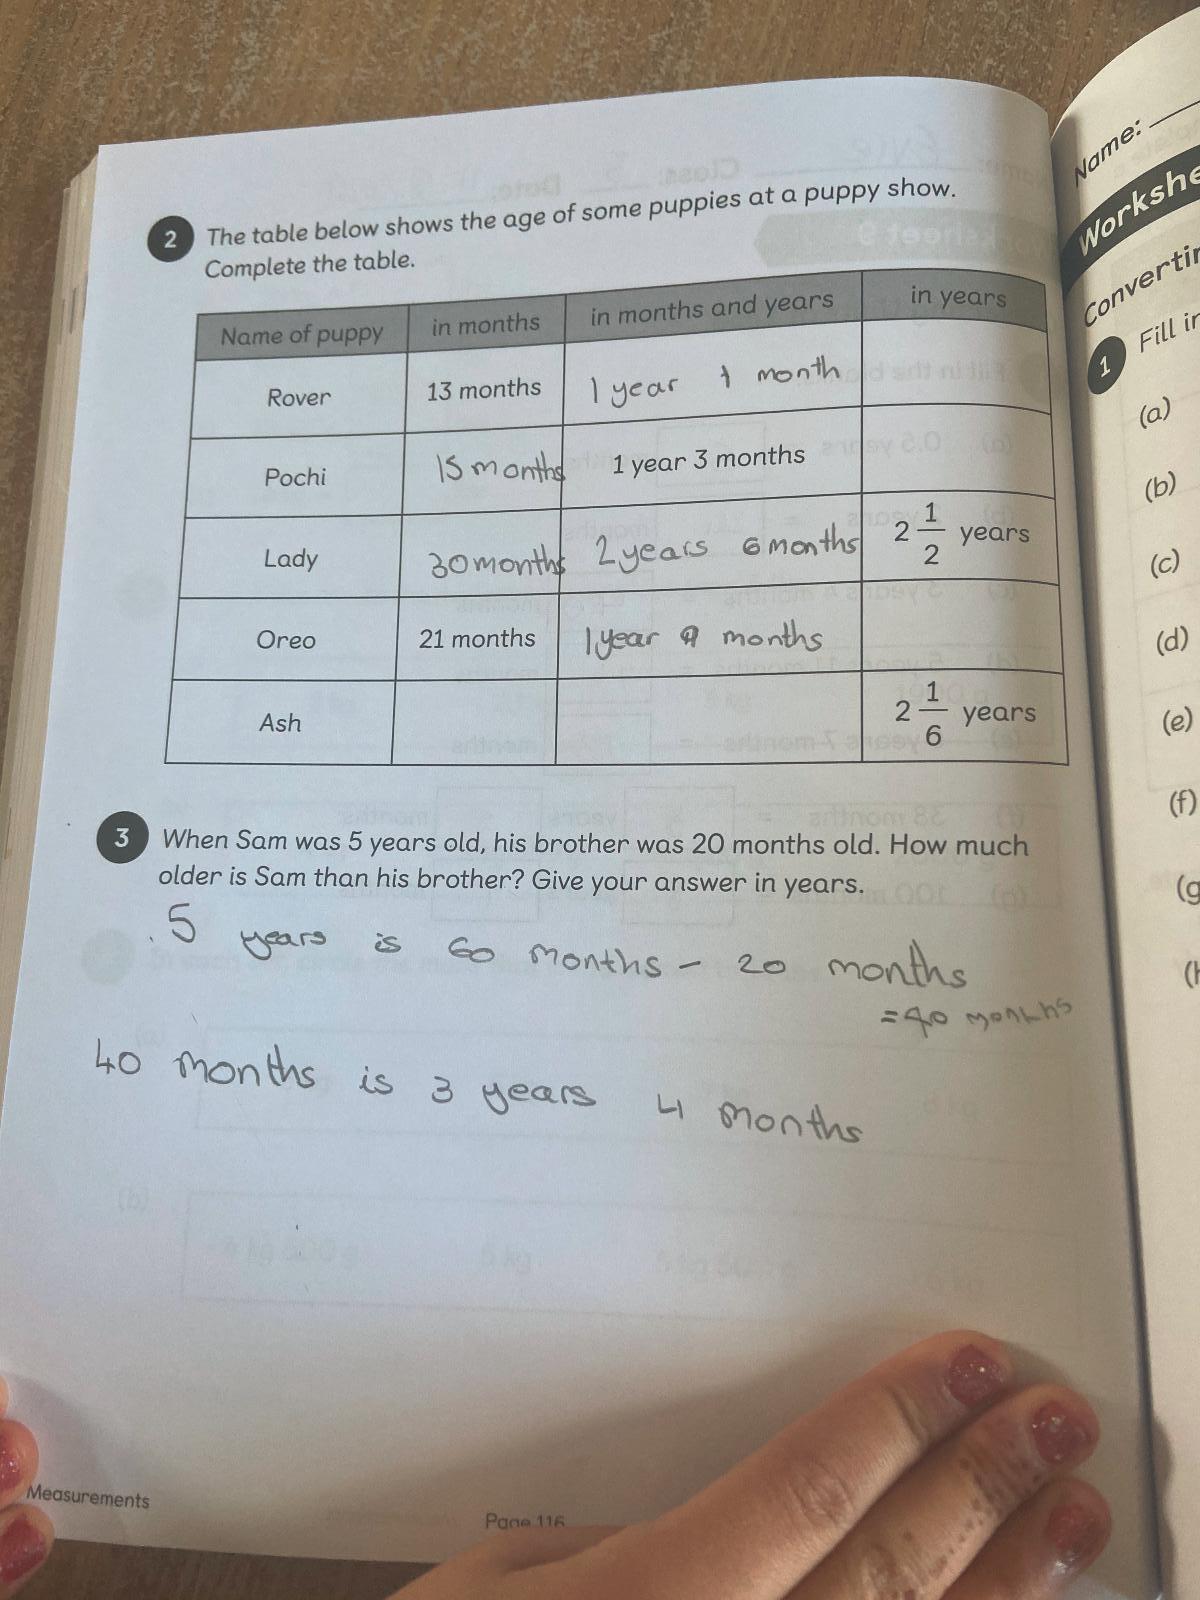 2 The table below shows the age of some puppies at a puppy show.
Complete the table.
Name of puppy in months in months and years in years
Rover 13 months 1 year 1 month
Pochi 15 months 1 year 3 months
Lady 30 months 2 years 6 months 2 1/2 years
Oreo 21 months 1 year 9 months
Ash 2 1/6 years
3 When Sam was 5 years old, his brother was 20 months old. How much
older is Sam than his brother? Give your answer in years.
5 years is 60 months - 20 months
= 40 months
40 months is 3 years 4 months
Measurements
Page 116
Name:
1
(a)
(b)
(c)
(d)
(e)
(f)